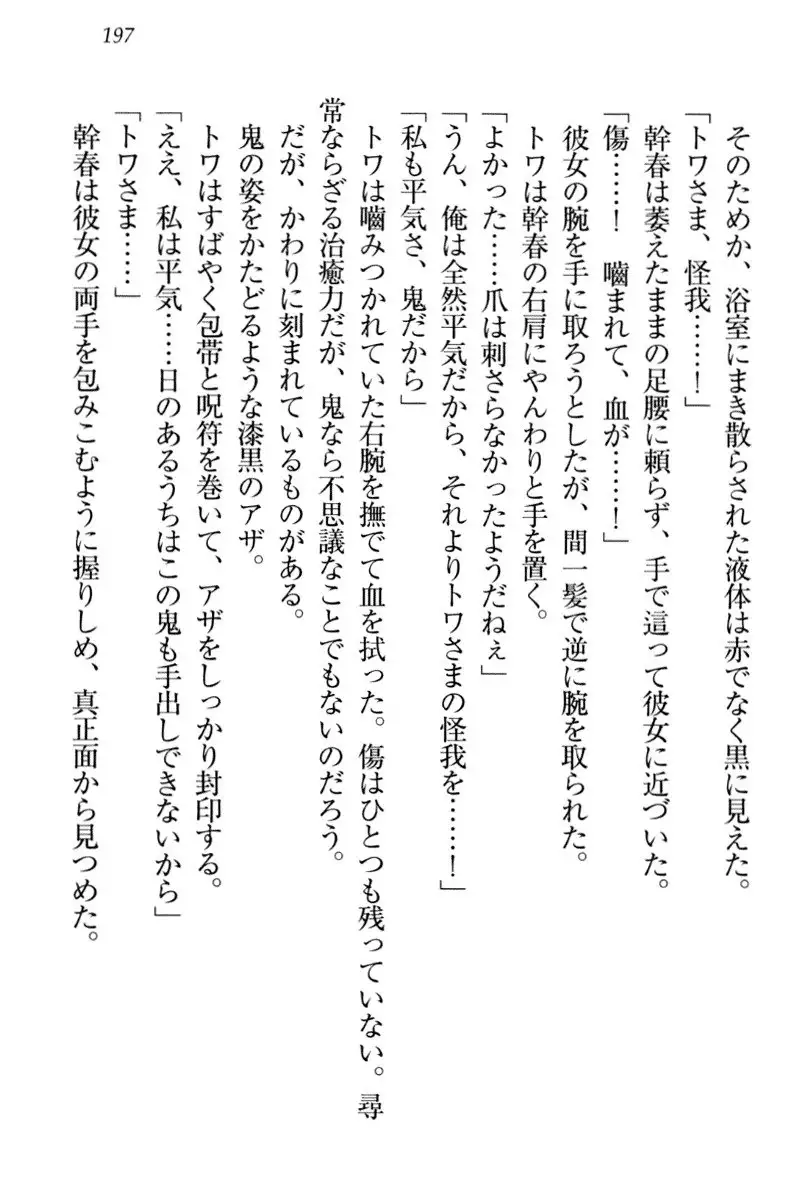 197
そのためか、浴室にまき散らされた液体は赤でなく黒に見えた。
「トワさま、怪我……！」
幹春は萎えたままの足腰に頼らず、手で這って彼女に近づいた。
「傷……！　嚙まれて、血が……！」
彼女の腕を手に取ろうとしたが、間一髪で逆に腕を取られた。
トワは幹春の右肩にやんわりと手を置く。
「よかった……爪は刺さらなかったようだねぇ」
「うん、俺は全然平気だから、それよりトワさまの怪我を……！」
「私も平気さ、鬼だから」
トワは嚙みつかれていた右腕を撫でて血を拭った。傷はひとつも残っていない。尋
常ならざる治癒力だが、鬼なら不思議なことでもないのだろう。
だが、かわりに刻まれているものがある。
鬼の姿をかたどるような漆黒のアザ。
トワはすばやく包帯と呪符を巻いて、アザをしっかり封印する。
「ええ、私は平気……日のあるうちはこの鬼も手出しできないから」
「トワさま……」
幹春は彼女の両手を包みこむように握りしめ、真正面から見つめた。